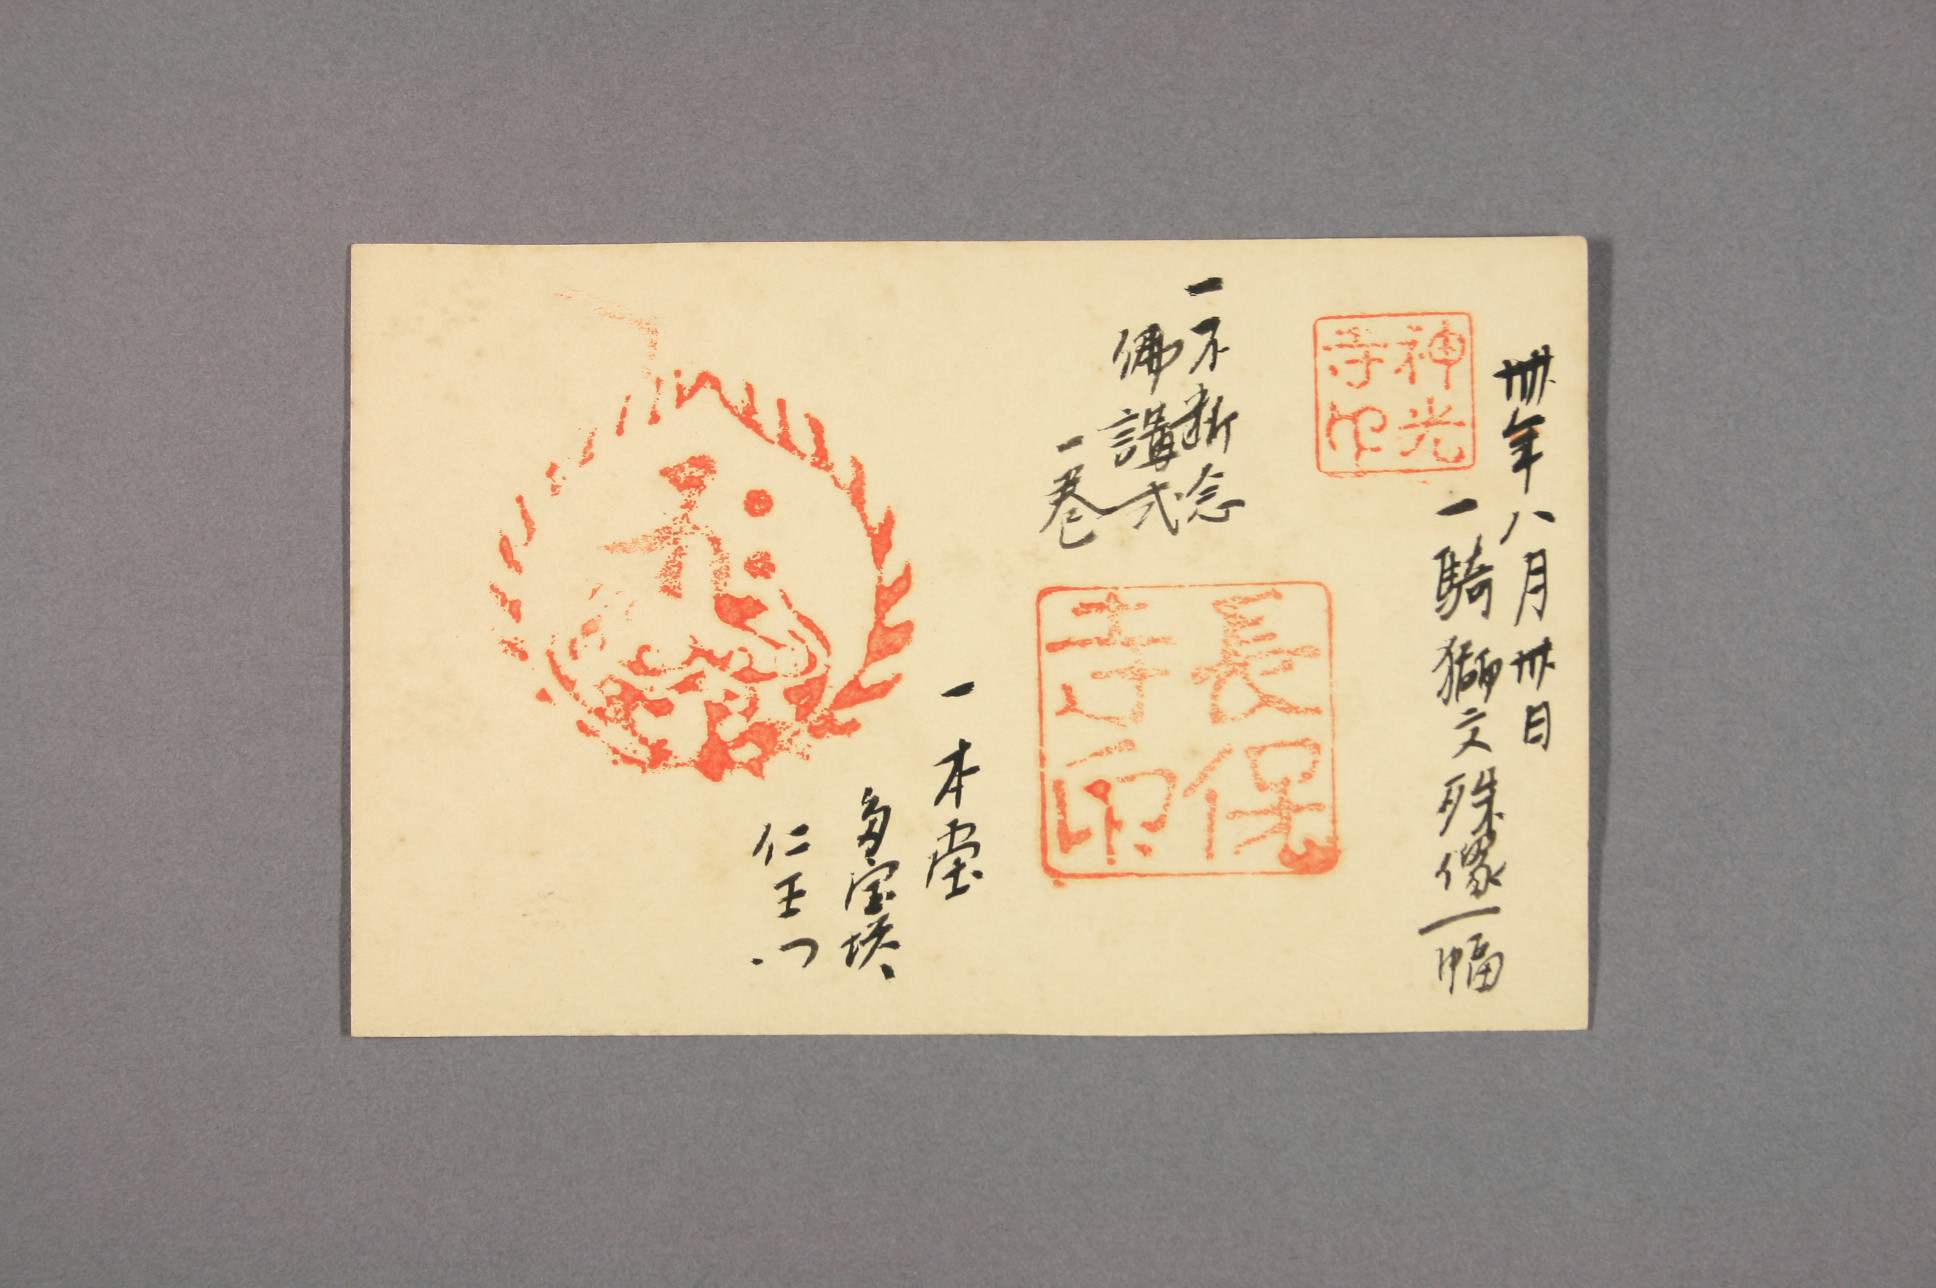 卌年八月卅日
一騎獅文殊像一幅
神光
寺印
一不断念
佛講式
一巻
長保
寺印
一本堂
多宝塔
仁王門